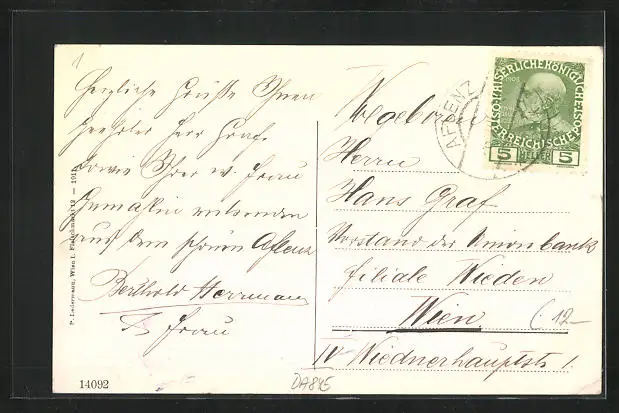 Herzliche Grüße Ihnen
geehrter Herr Graf
sowie Ihrer w. Frau
Gemahlin entsenden
aus dem schönen Aflenz
Berthold Herrmann
& Frau
P. Ledermann, Wien I. Fleischmarkt 12 — 191
14092
DA84E
AFLENZ
KAISERLICHE KÖNIGLICHE
ÖSTERREICHISCHE POST
1908
5 HELLER 5
Herrn
Hans Graf
Vorstand der Unionbank
Filiale Wieden
Wien
(12-
IV Wiednerhauptstr 1.